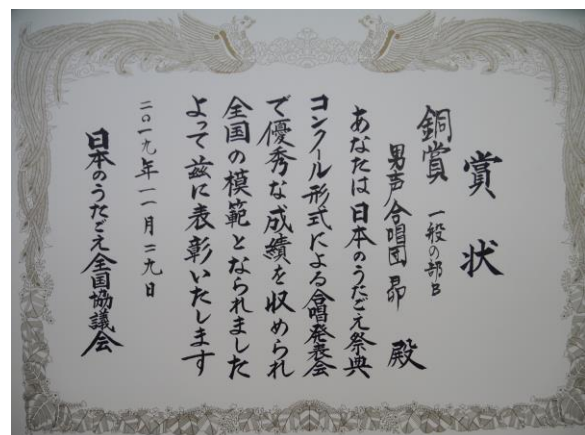 賞状
銅賞 一般の部B
男声合唱団 昴 殿
あなたは日本のうたごえ祭典
コンクール形式による合唱発表会
で優秀な成績を収められ
全国の模範となられました
よって茲に表彰いたします
二〇一九年一一月二九日
日本のうたごえ全国協議会